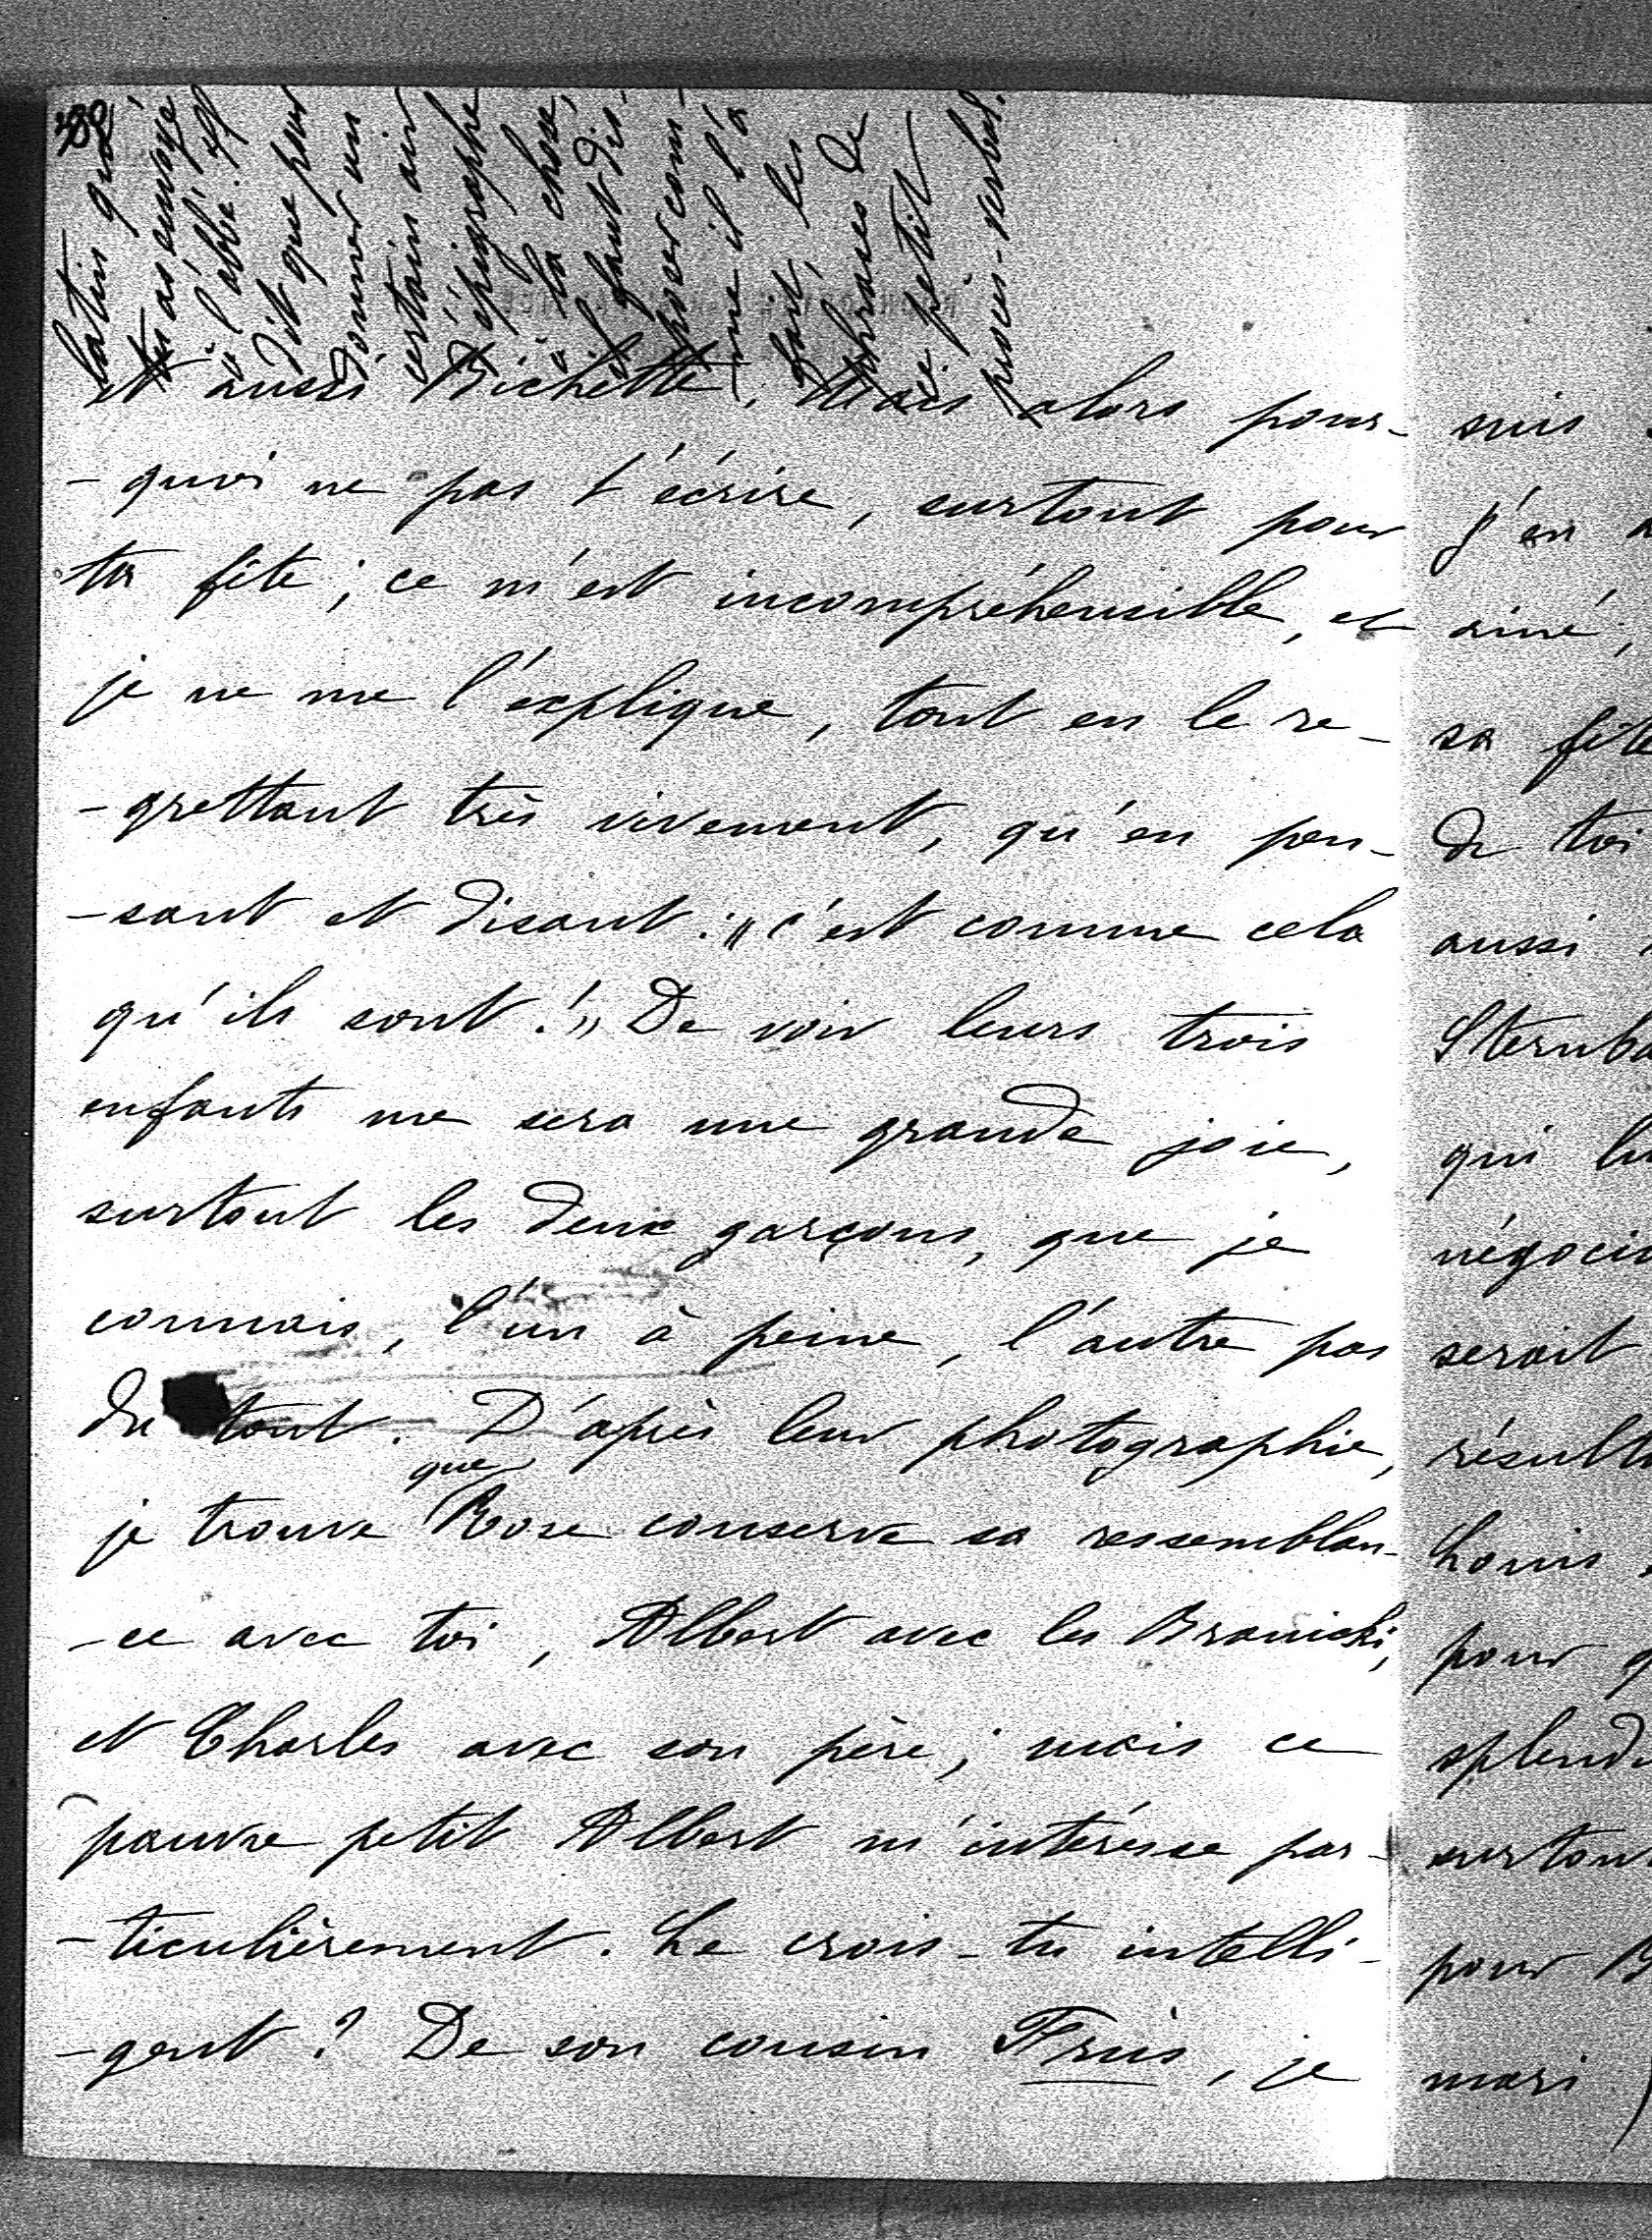 82
latin que
tu as envoyé
à l'abbé. Il
dit que pour
donner un
certain air
d'épigraphe
à la chose,
il faut dis-
poser com-
me il l'a
fait les
phrases de
ce petit
proces-verbal.
et aussi Bichette. Mais alors pour-
-quoi ne pas t'écrire, surtout pour
ta fête; ce m'est incompréhensible, et
je ne me l'explique, tout en le re-
-grettant très vivement, qu'en pen-
-sant et disant: "c'est comme cela
qu'ils sont!" De voir leurs trois
enfants me sera une grande joie,
surtout les deux garçons, que je
connais, l'un à peine, l'autre pas
du tout. D'après leur photographie,
je trouve que Rose conserve sa ressemblan-
-ce avec toi, Albert avec les Branicki,
et Charles avec son père; mais ce
pauvre petit Albert m'intéresse par-
-ticulièrement. Le crois-tu intelli-
-gent? De son cousin Friis, je
suis
j'en
aimé,
sa fête
de toi
aussi
Sternba
qui lu
négocia
serait
résulta
Louis
pour q
splend
surtou
pour B
mari (